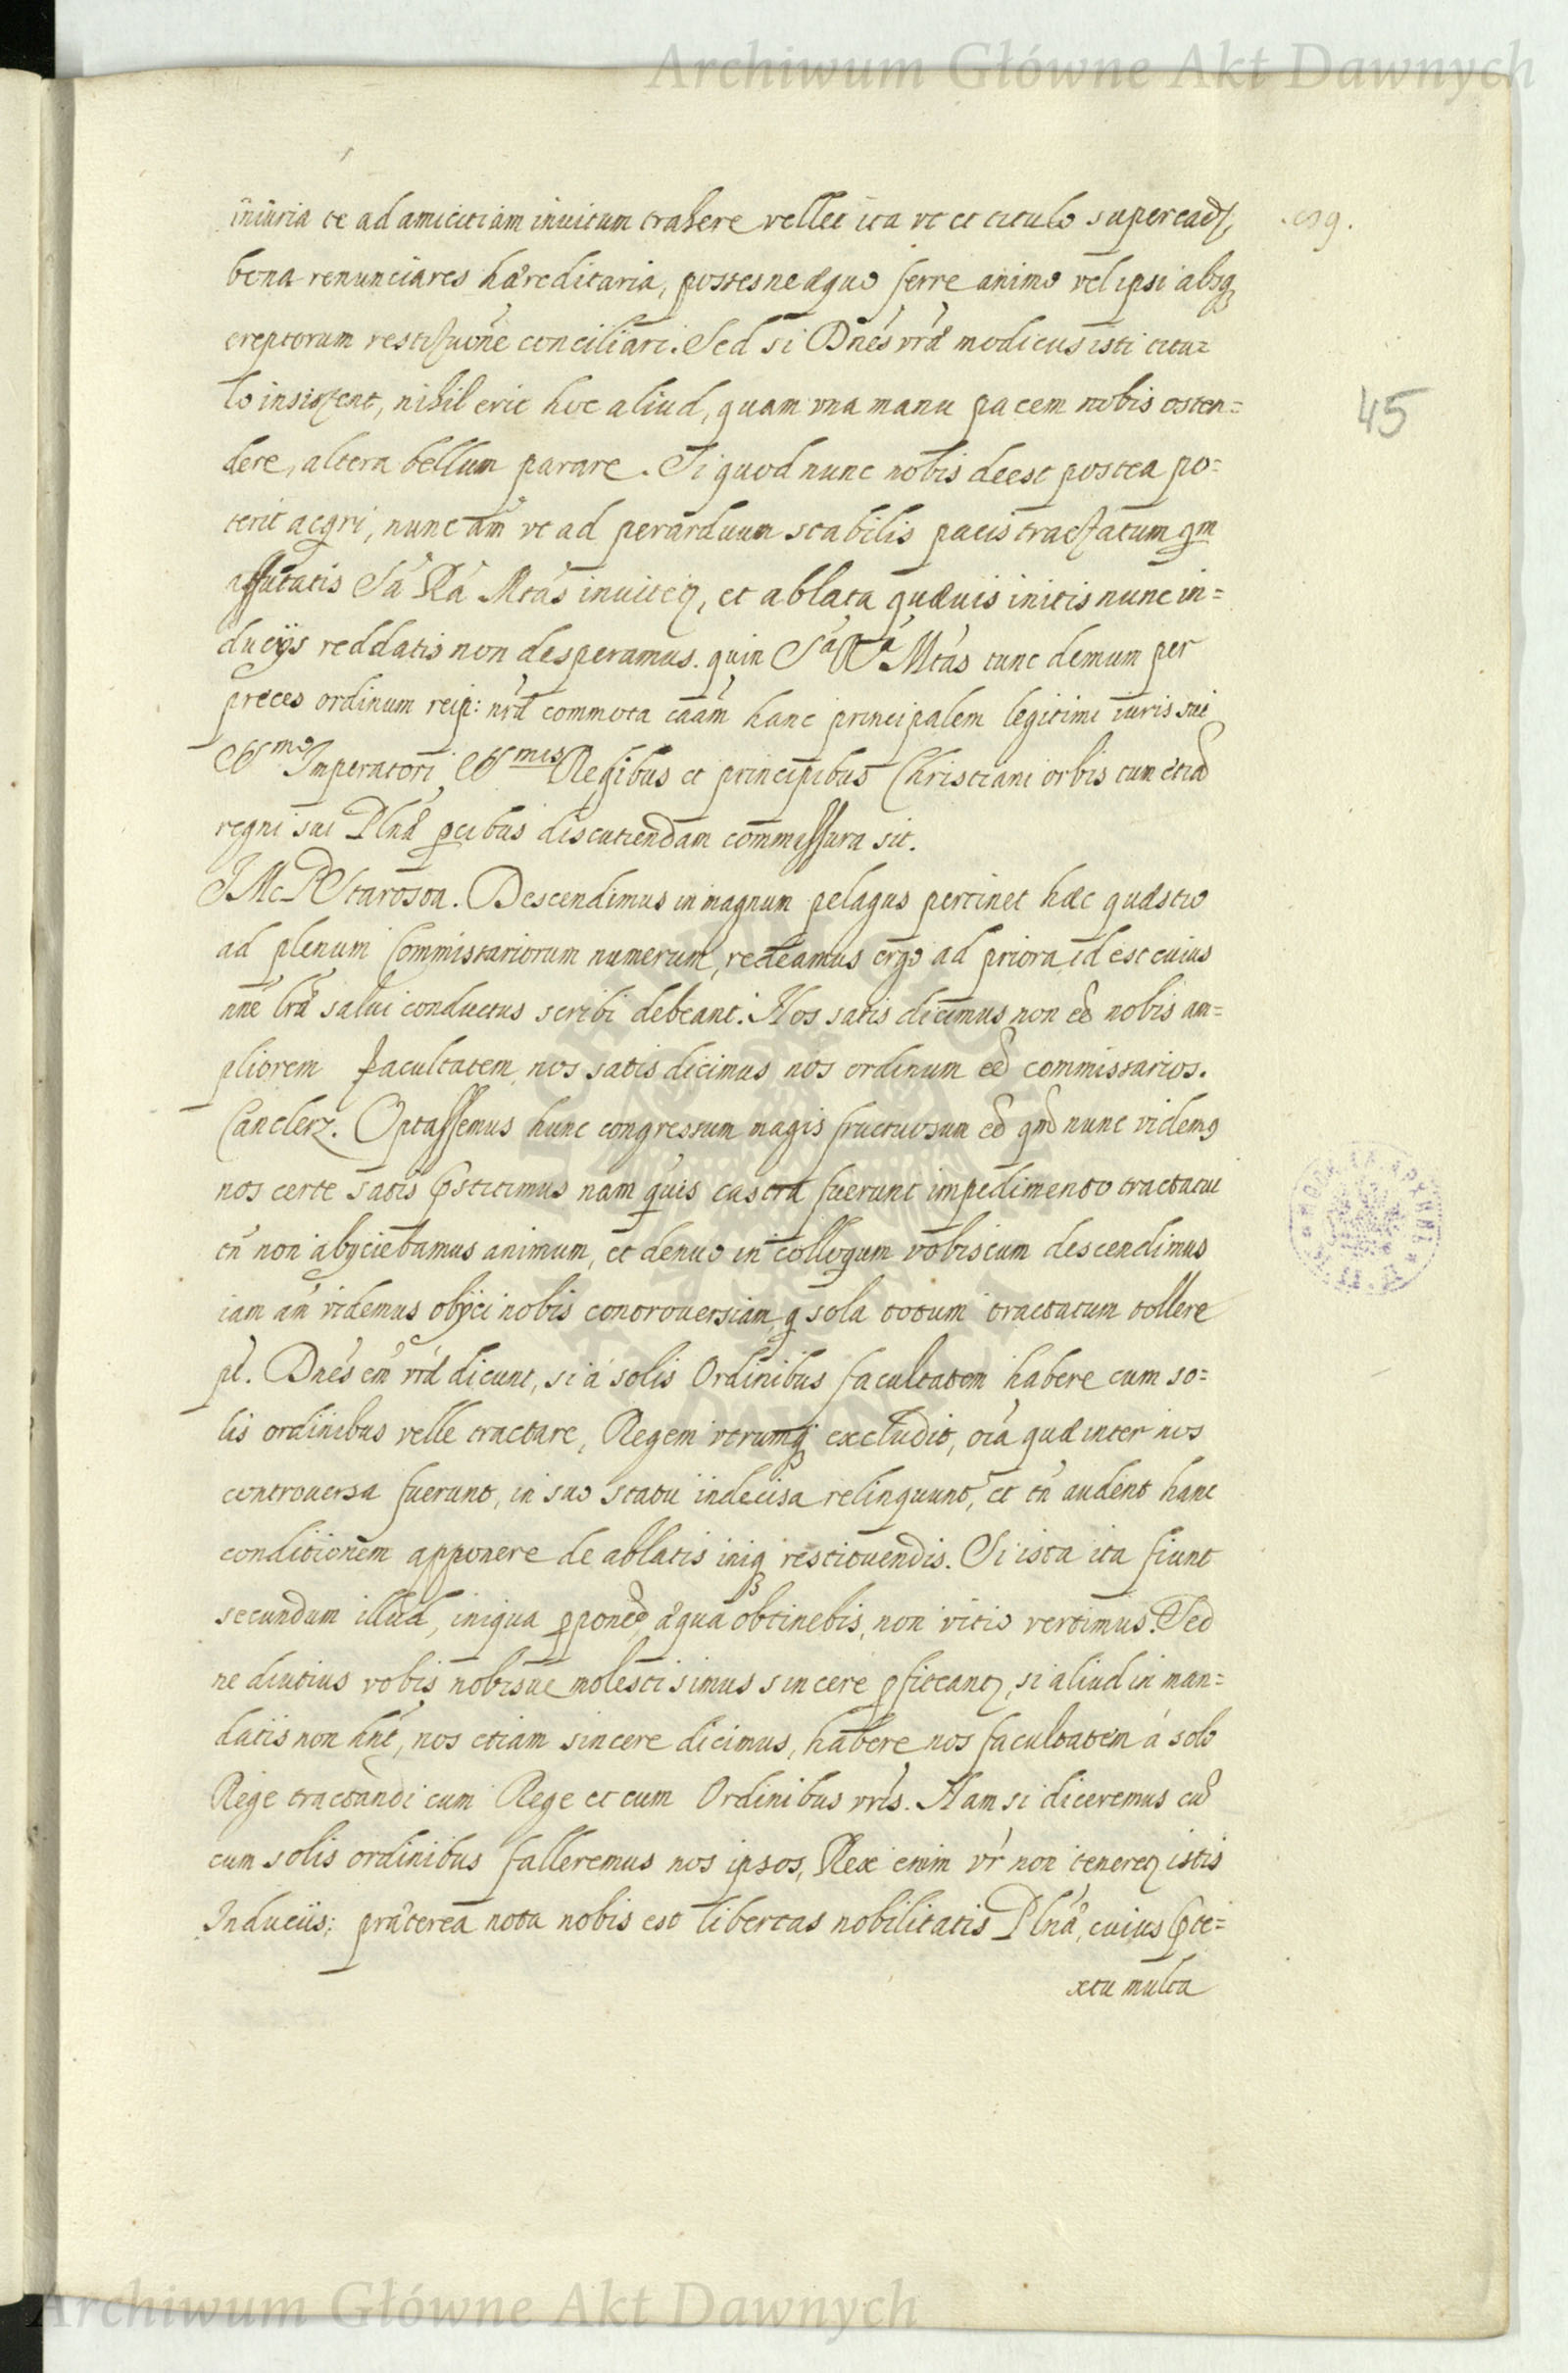 Archiwum Główne Akt Dawnych
iniuria te ad amicitiam inuitum trahere vellet ita vt et titulo
bona renunciares hæreditaria, possesne æquo ferre animo vel ipsi absq
ereptorum conciliari. Sed si Dnes vræ modicus isti titu=
lo insistent, nihil erit hoc aliud, quam vna manu pacem nobis osten=
45
dere, altera bellum parare. Si quod nunc nobis deest postea po=
terit, nunc am vt ad perarduum stabilis pacis tractatum qm
Sa Ra Mtas, et ablata quæuis initis nunc in=
ducijs reddatis non desperamus. quin Sa Ra Mtas tunc demum per
preces ordinum reip: nræ commota caam hanc principalem legitimi iuris sui
Imperatori, Regibus et principibus Christiani orbis
regni sui Plnæ discutiendam commissura sit.
JMcP Starosta. Descendimus in magnum pelagus pertinet hæc quæstio
ad plenum Commissariorum numerum, redeamus ergo ad priora id est cuius
nne lræ salui conductus scribi debeant. Nos satis dicimus non nobis am=
pliorem facultatem, nos satis dicimus nos ordinum commissarios.
Canclerz. Optassemus hunc congressum magis fructuosum nunc
nos certe satis nam quis castra fuerunt impedimento tractatui
tn non abijciebamus animum, et denuo in colloqum vobiscum descendimus
iam am videmus obijci nobis controuersiam, q sola totum tractatum tollere
pt. Dnes em vræ dicunt, si a solis Ordinibus facultatem habere cum so=
lis ordinibus velle tractare, Regem vtrumq excludit, oia quæ inter nos
controuersa fuerunt, in suo statu indecisa relinquunt, et tn audent hanc
conditionem apponere de ablatis iniq restituendis. Si ista ita fiunt
secundum illud, iniqua, æqua obtinebis, non vitio vertimus. Sed
ne diutius vobis nobisue molesti simus sincere, si aliud in man=
datis non hnt, nos etiam sincere dicimus, habere nos facultatem á solo
Rege tractandi cum Rege et cum Ordinibus vris. Nam si diceremus
cum solis ordinibus falleremus nos ipsos, Rex enim vr non istis
Induciis; præterea nota nobis est libertas nobilitatis Plnæ, cuius
xtu multa
Archiwum Główne Akt Dawnych